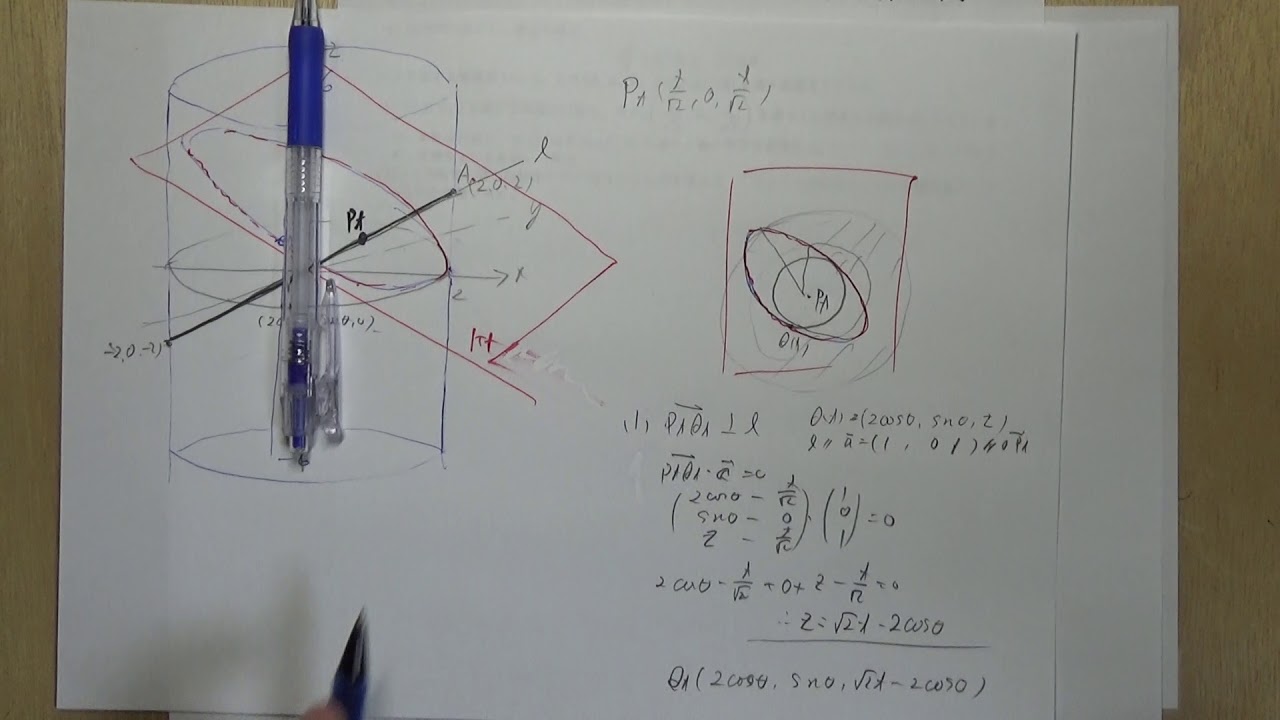 z
6
Pt (t/√2, 0, t/√2)
l
A(2,0,2)
y
Pt
x
2
-2,0,-2)
Pt
Qt
(1) PtQt ⊥ l
Qt=(2cosθ, sinθ, z)
l ∥ a=(1, 0 1) ∥ OPt
PtQt・a=0
(2cosθ - t/√2
sinθ - 0
z - t/√2)・(1
0
1) =0
2cosθ - t/√2 + 0 + z - t/√2 = 0
∴ z = √2t - 2cosθ
Qt(2cosθ, sinθ, √2t - 2cosθ)